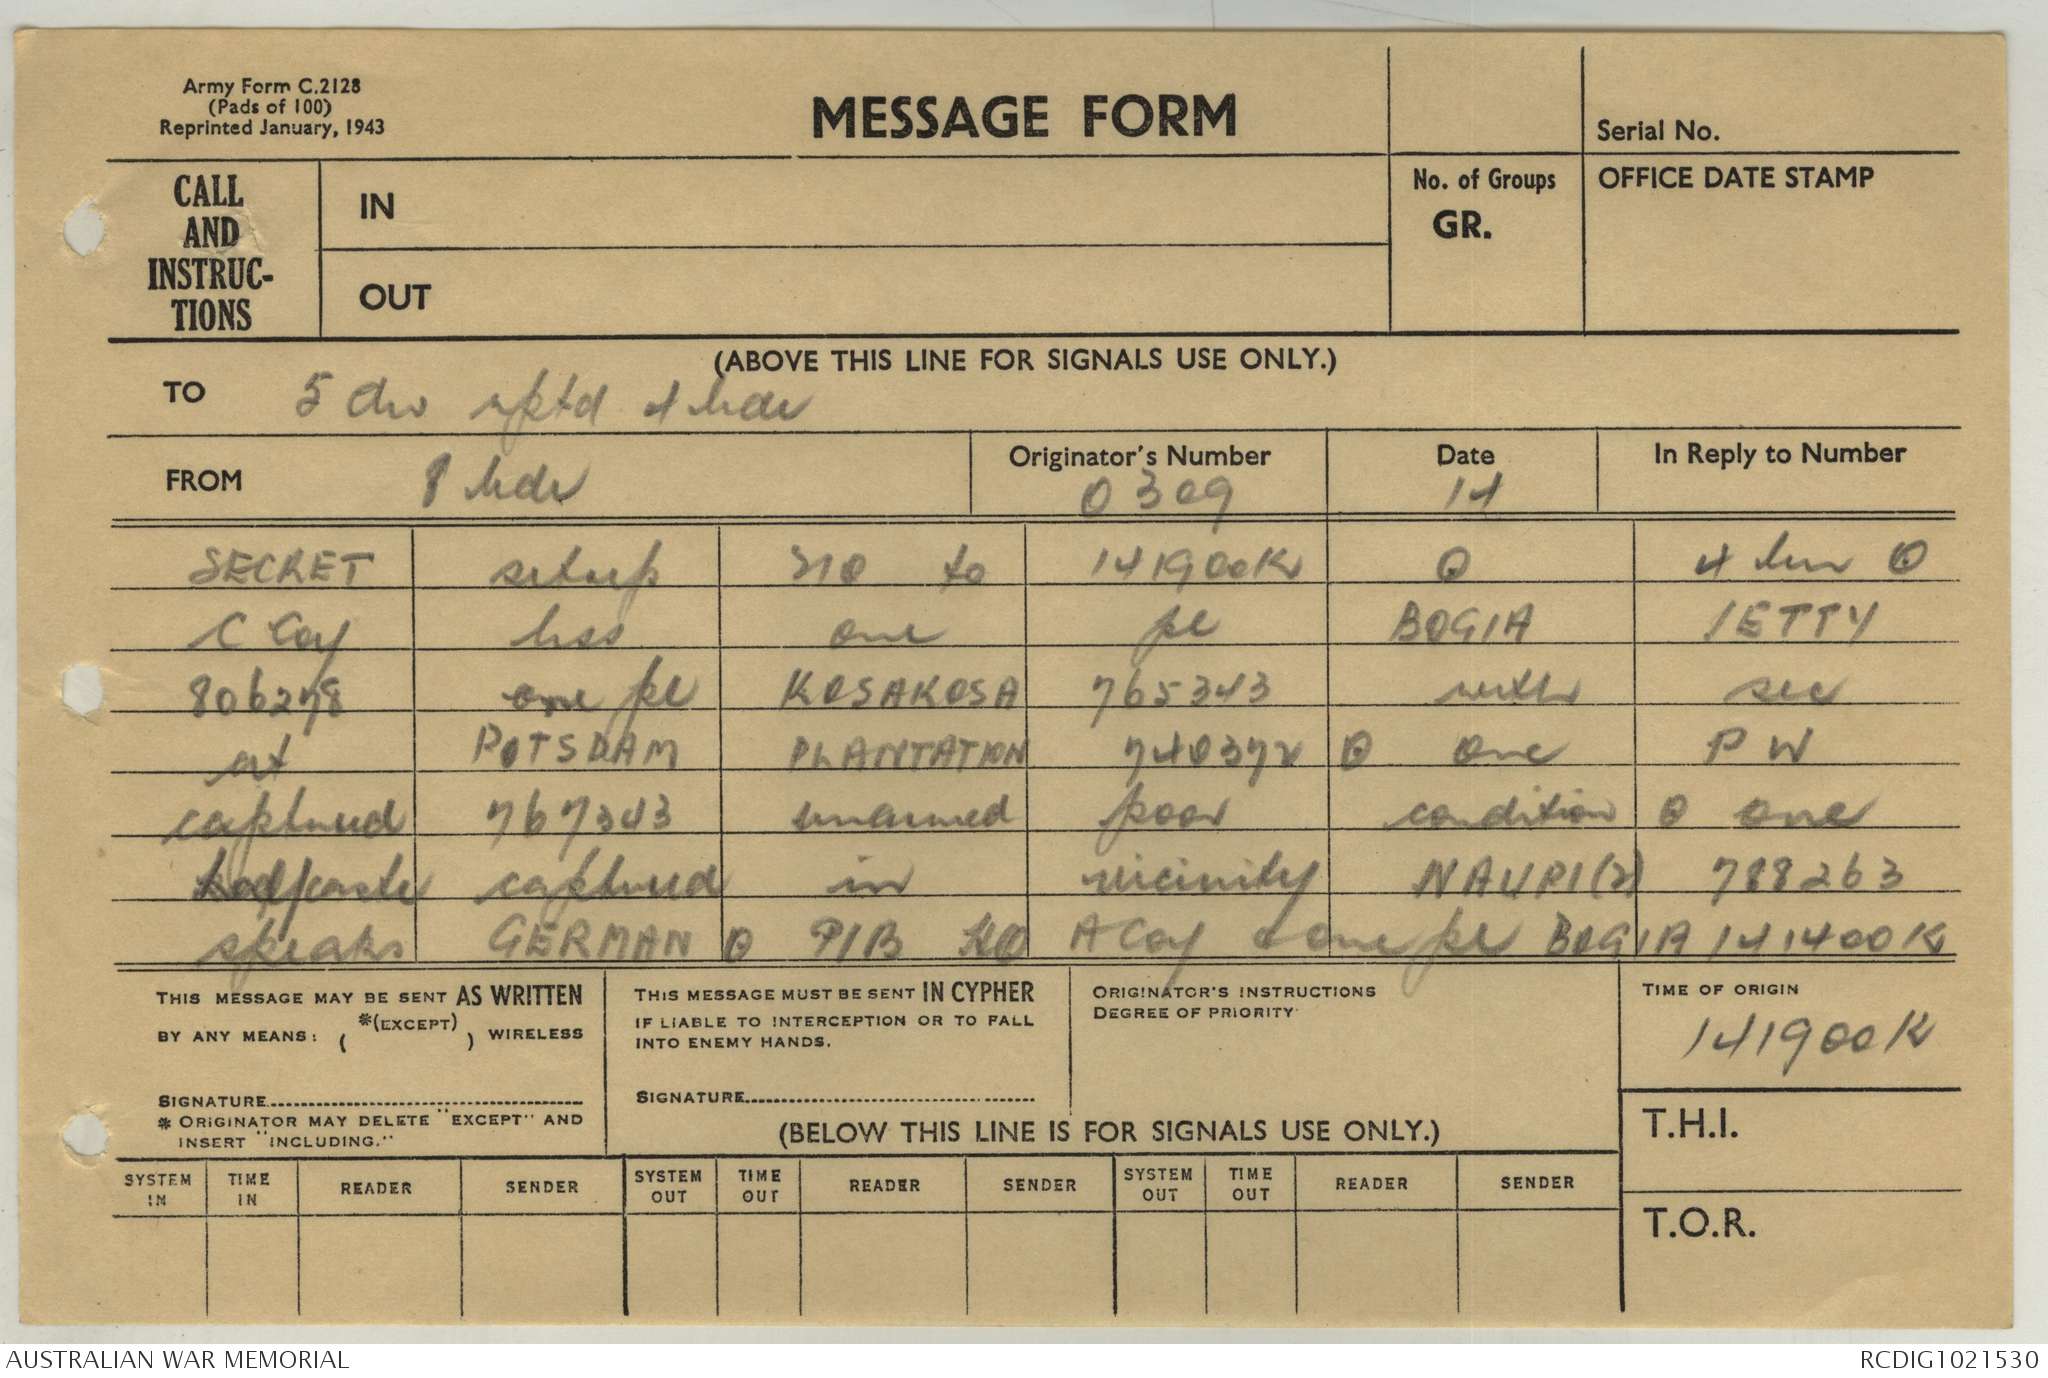 Army Form C.2128
(Pads of 100)
Reprinted January, 1943
MESSAGE FORM
Serial No.
CALL
AND
INSTRUC-
TIONS
IN
OUT
No. of Groups
GR.
OFFICE DATE STAMP
(ABOVE THIS LINE FOR SIGNALS USE ONLY.)
TO 5 div rptd 4 bde
FROM 8 bde
Originator's Number
0309
Date
14
In Reply to Number
SECRET sitrep 310 to 141900K O 4 bn O
C Coy less one pl BOGIA JETTY
806278 one pl KOSAKOSA 765343 with sec
at POTSDAM PLANTATION 740372 O one PW
captured 767343 unarmed poor condition O one
halfcaste captured in vicinity NAUPI(2) 788263
speaks GERMAN O PIB HQ A Coy & one pl BOGIA 141400K
THIS MESSAGE MAY BE SENT AS WRITTEN
BY ANY MEANS: ( *(EXCEPT) ) WIRELESS
SIGNATURE
* ORIGINATOR MAY DELETE "EXCEPT" AND
INSERT "INCLUDING."
THIS MESSAGE MUST BE SENT IN CYPHER
IF LIABLE TO INTERCEPTION OR TO FALL
INTO ENEMY HANDS.
SIGNATURE
ORIGINATOR'S INSTRUCTIONS
DEGREE OF PRIORITY
TIME OF ORIGIN
141900K
(BELOW THIS LINE IS FOR SIGNALS USE ONLY.)
T.H.I.
SYSTEM IN TIME IN READER SENDER SYSTEM OUT TIME OUT READER SENDER SYSTEM OUT TIME OUT READER SENDER
T.O.R.
AUSTRALIAN WAR MEMORIAL RCDIG1021530